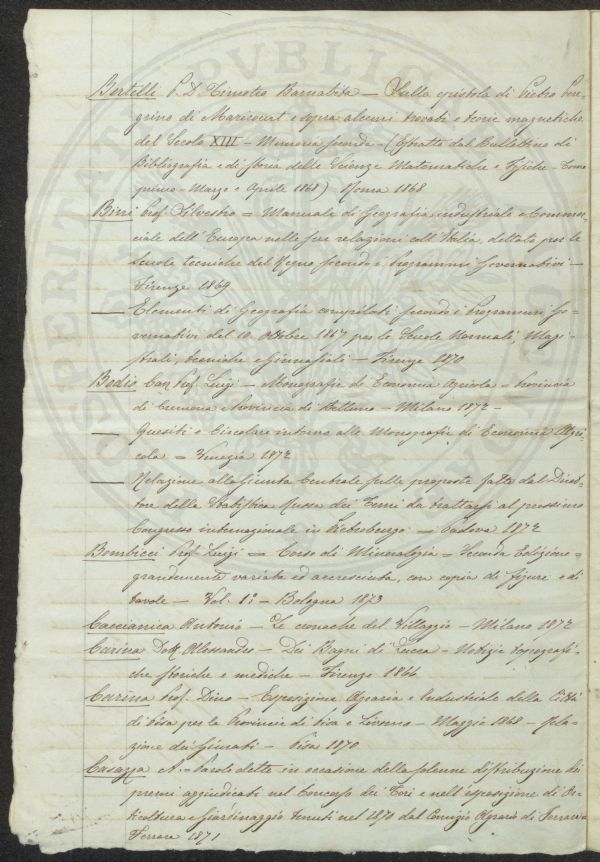 Bertelli P. D. Timoteo Barnabita — Sulla epistola di Pietro Pere-
grino di Maricourt e sopra alcuni trovati e teorie magnetiche
del Secolo XIII — Memoria seconda — (Estratto dal Bullettino di
Bibliografia e di Storia delle Scienze Matematiche e Fisiche — Tomo
primo — Marzo e Aprile 1868) Roma 1868
Bini Prof. Silvestro = Manuale di Geografia industriale e Commer-
ciale dell'Europa nelle sue relazioni coll'Italia, dettato per le
Scuole tecniche del Regno secondo i Programmi Governativi —
Firenze 1869
— Elementi di Geografia compilati secondo i Programmi Go-
vernativi del 10 Ottobre 1867 per le Scuole Normali, Magi-
strali, tecniche e Ginnasiali — Firenze 1870
Bodio Cav. Prof. Luigi — Monografie di Economia Agricola — Provincia
di Cremona e Provincia di Belluno — Milano 1872 —
— Quesiti e Circolare intorno alle Monografie di Economia Agri-
cola = Venezia 1872
— Relazione alla Giunta Centrale sulle proposte fatte dal Diret-
tore della Statistica Russa dei Temi da trattarsi al prossimo
Congresso internazionale in Pietroburgo — Padova 1872
Bombicci Prof. Luigi = Corso di Mineralogia = Seconda Edizione =
grandemente variata ed accresciuta, con copia di figure e di
tavole — Vol. 1º — Bologna 1873
Caccianiga Antonio — Le cronache del Villaggio — Milano 1872
Carina Dott. Alessandro — Dei Bagni di Lucca — Notizie topografi-
che storiche e mediche — Firenze 1866
Carina Prof. Dino — Esposizione Agraria e Industriale della Città
di Pisa per le Provincie di Pisa e Livorno — Maggio 1868 — Rela-
zione dei Giurati — Pisa 1870
Casazza A. — Parole dette in occasione della solenne distribuzione dei
premi aggiudicati nel Concorso dei Tori e nell'esposizione di Or-
ticoltura e Giardinaggio tenuti nel 1870 dal Comizio Agrario di Ferrara —
Ferrara 1871